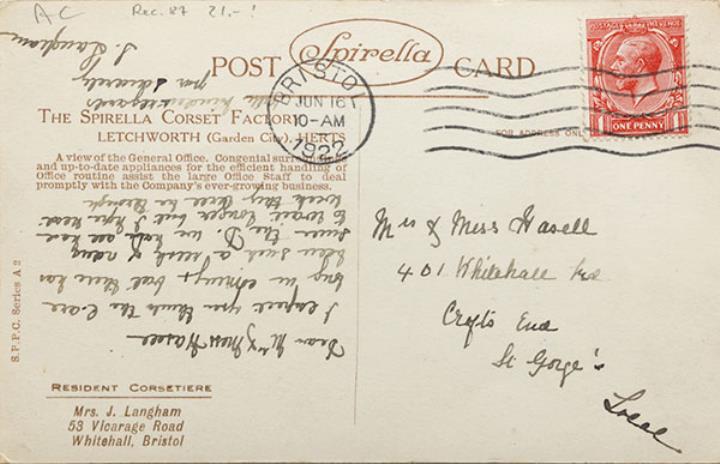 AC Rec. 87 21.-!
POST Spirella CARD
BRISTOL
JUN 16
10-AM
1922
ONE PENNY
1 1
FOR ADDRESS ONLY
THE SPIRELLA CORSET FACTORY
LETCHWORTH (Garden City), HERTS
A view of the General Office. Congenial surroundings
and up-to-date appliances for the efficient handling of
Office routine assist the large Office Staff to deal
promptly with the Company's ever-growing business.
Dear Mrs & Miss Hasell
I expect you think the C are
long in coming but there has
been such a rush of
since the D. we
to wait longer but I hope next
week they will be through
with kindest regards
yrs sincerely
J. Langham
S.P.P.C. Series A 2
RESIDENT CORSETIERE
Mrs. J. Langham
53 Vicarage Road
Whitehall, Bristol
Mrs & Miss Hasell
401 Whitehall Rd
Crofts End
St Gorge's
Local